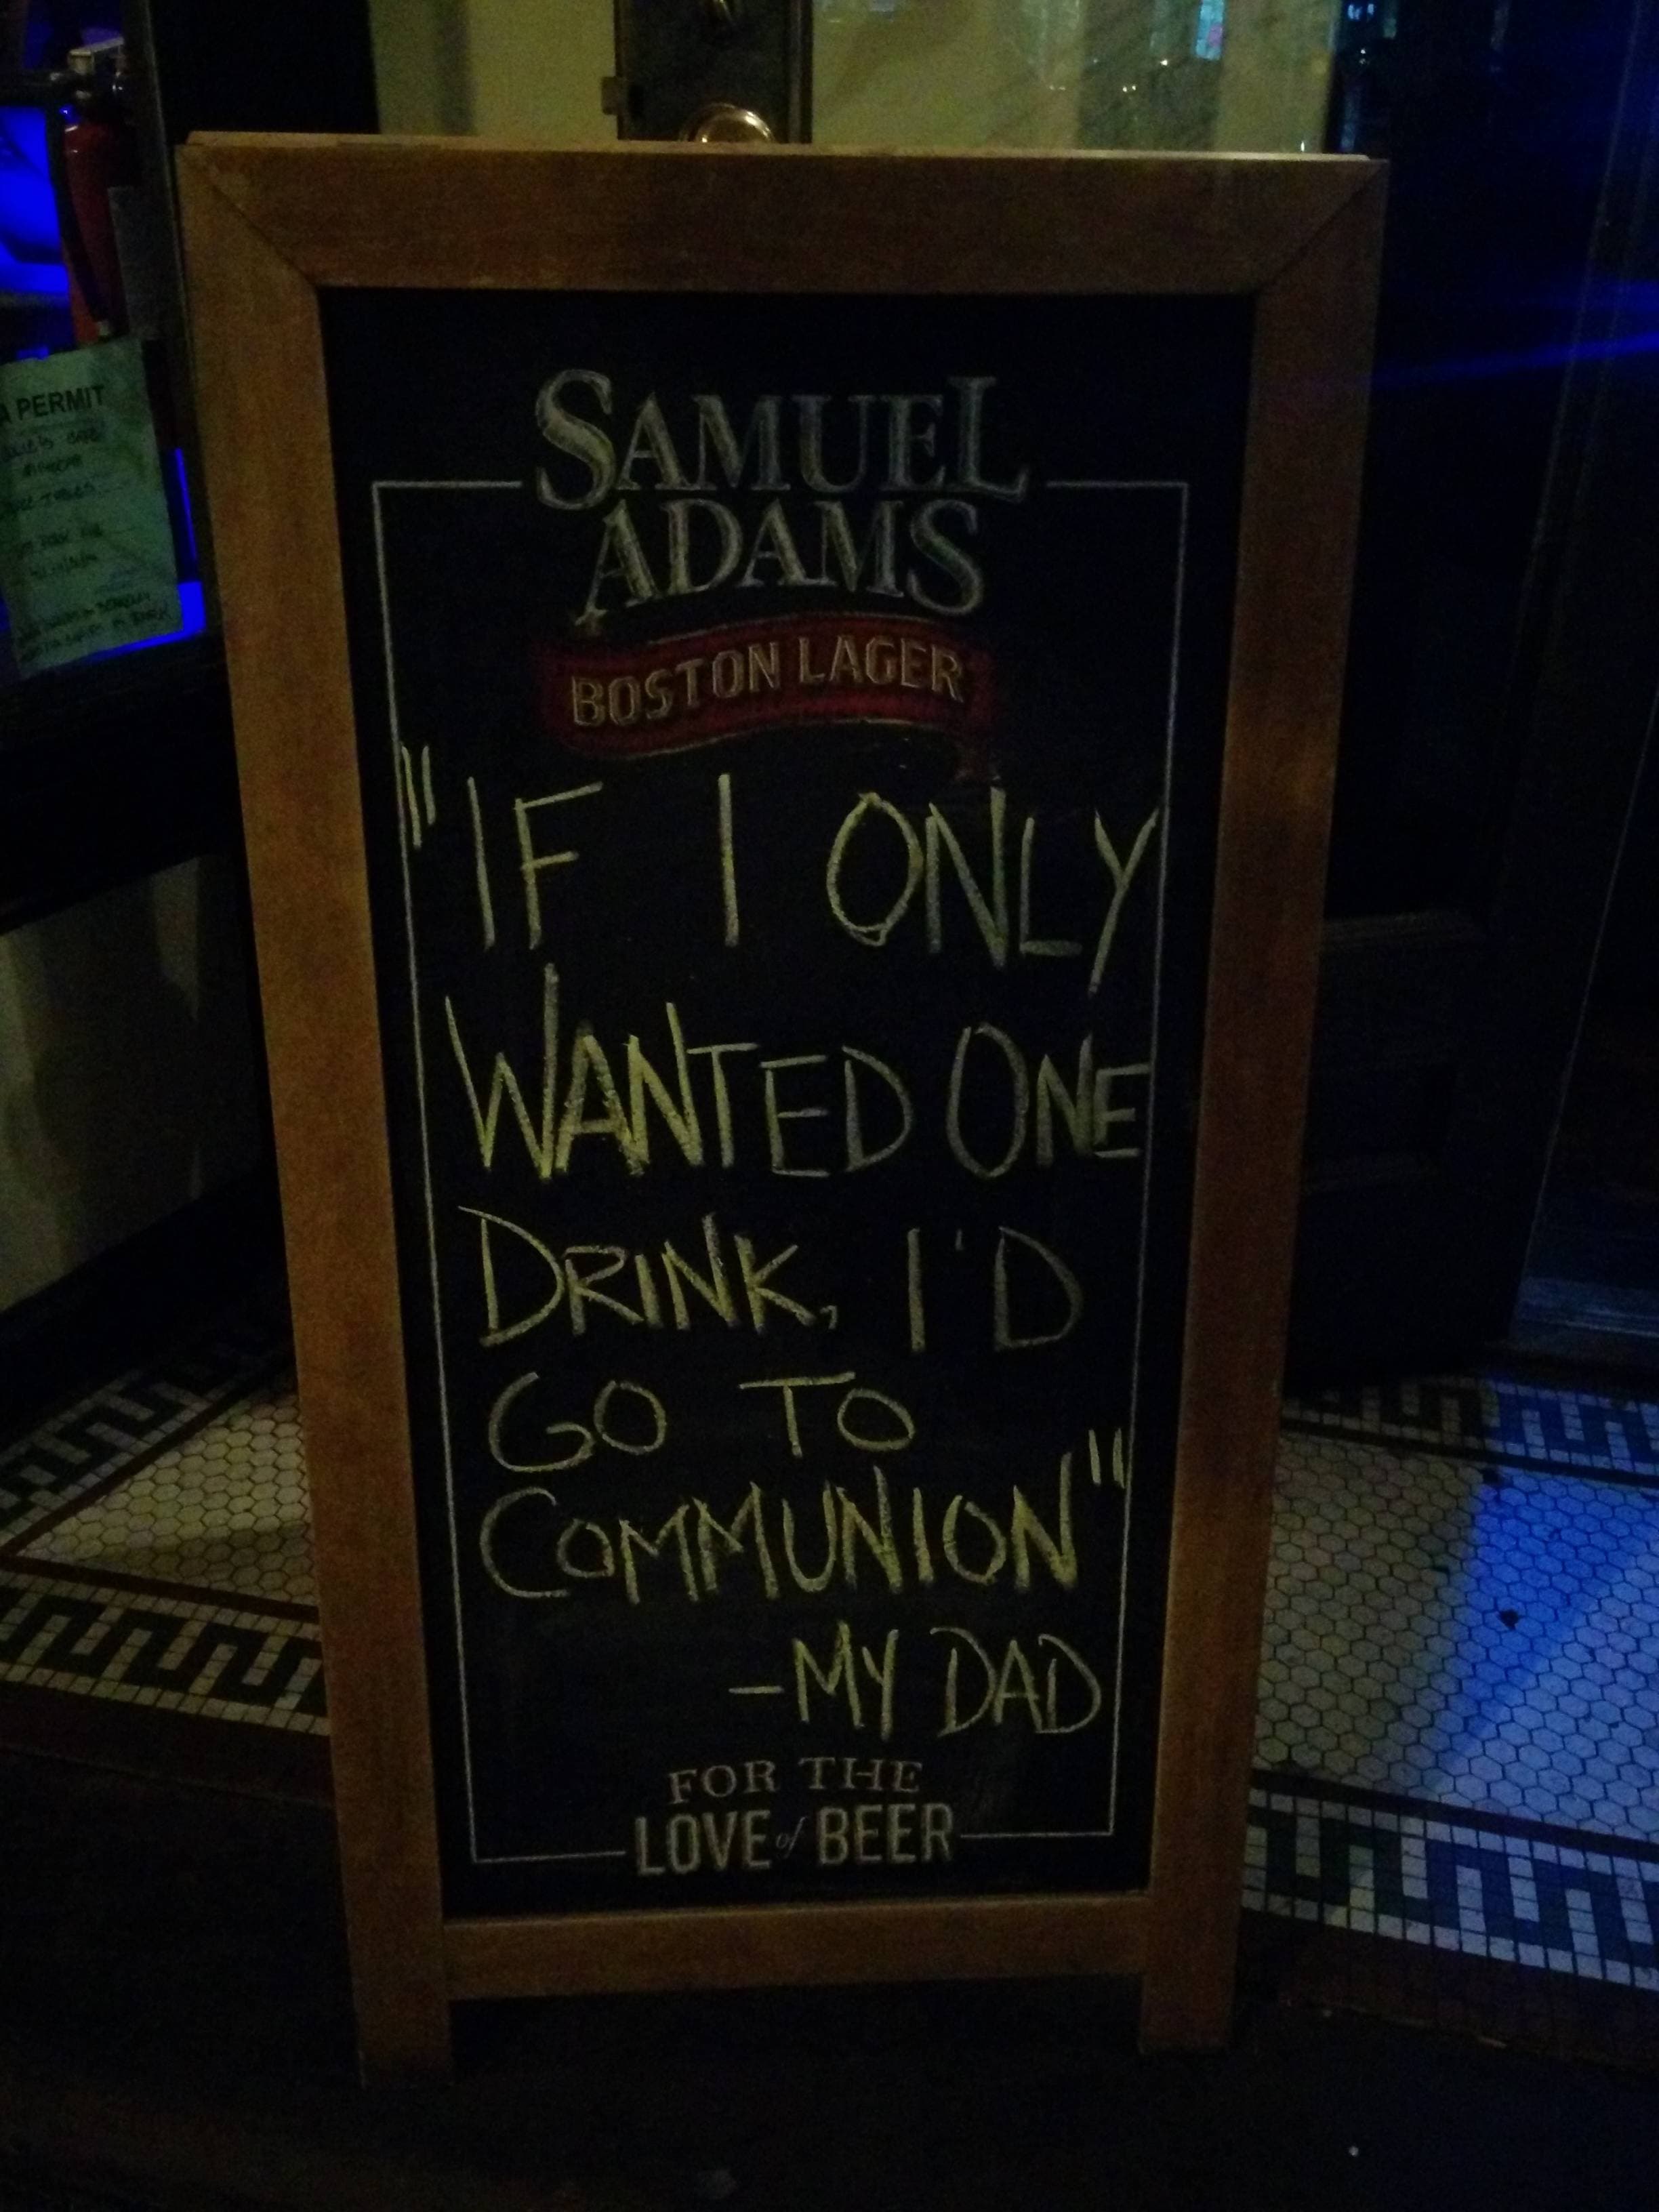 SAMUEL
ADAMS
BOSTON LAGER
"IF I ONLY
WANTED ONE
DRINK, I'D
GO TO
COMMUNION"
-MY DAD
FOR THE
LOVE of BEER
A PERMIT